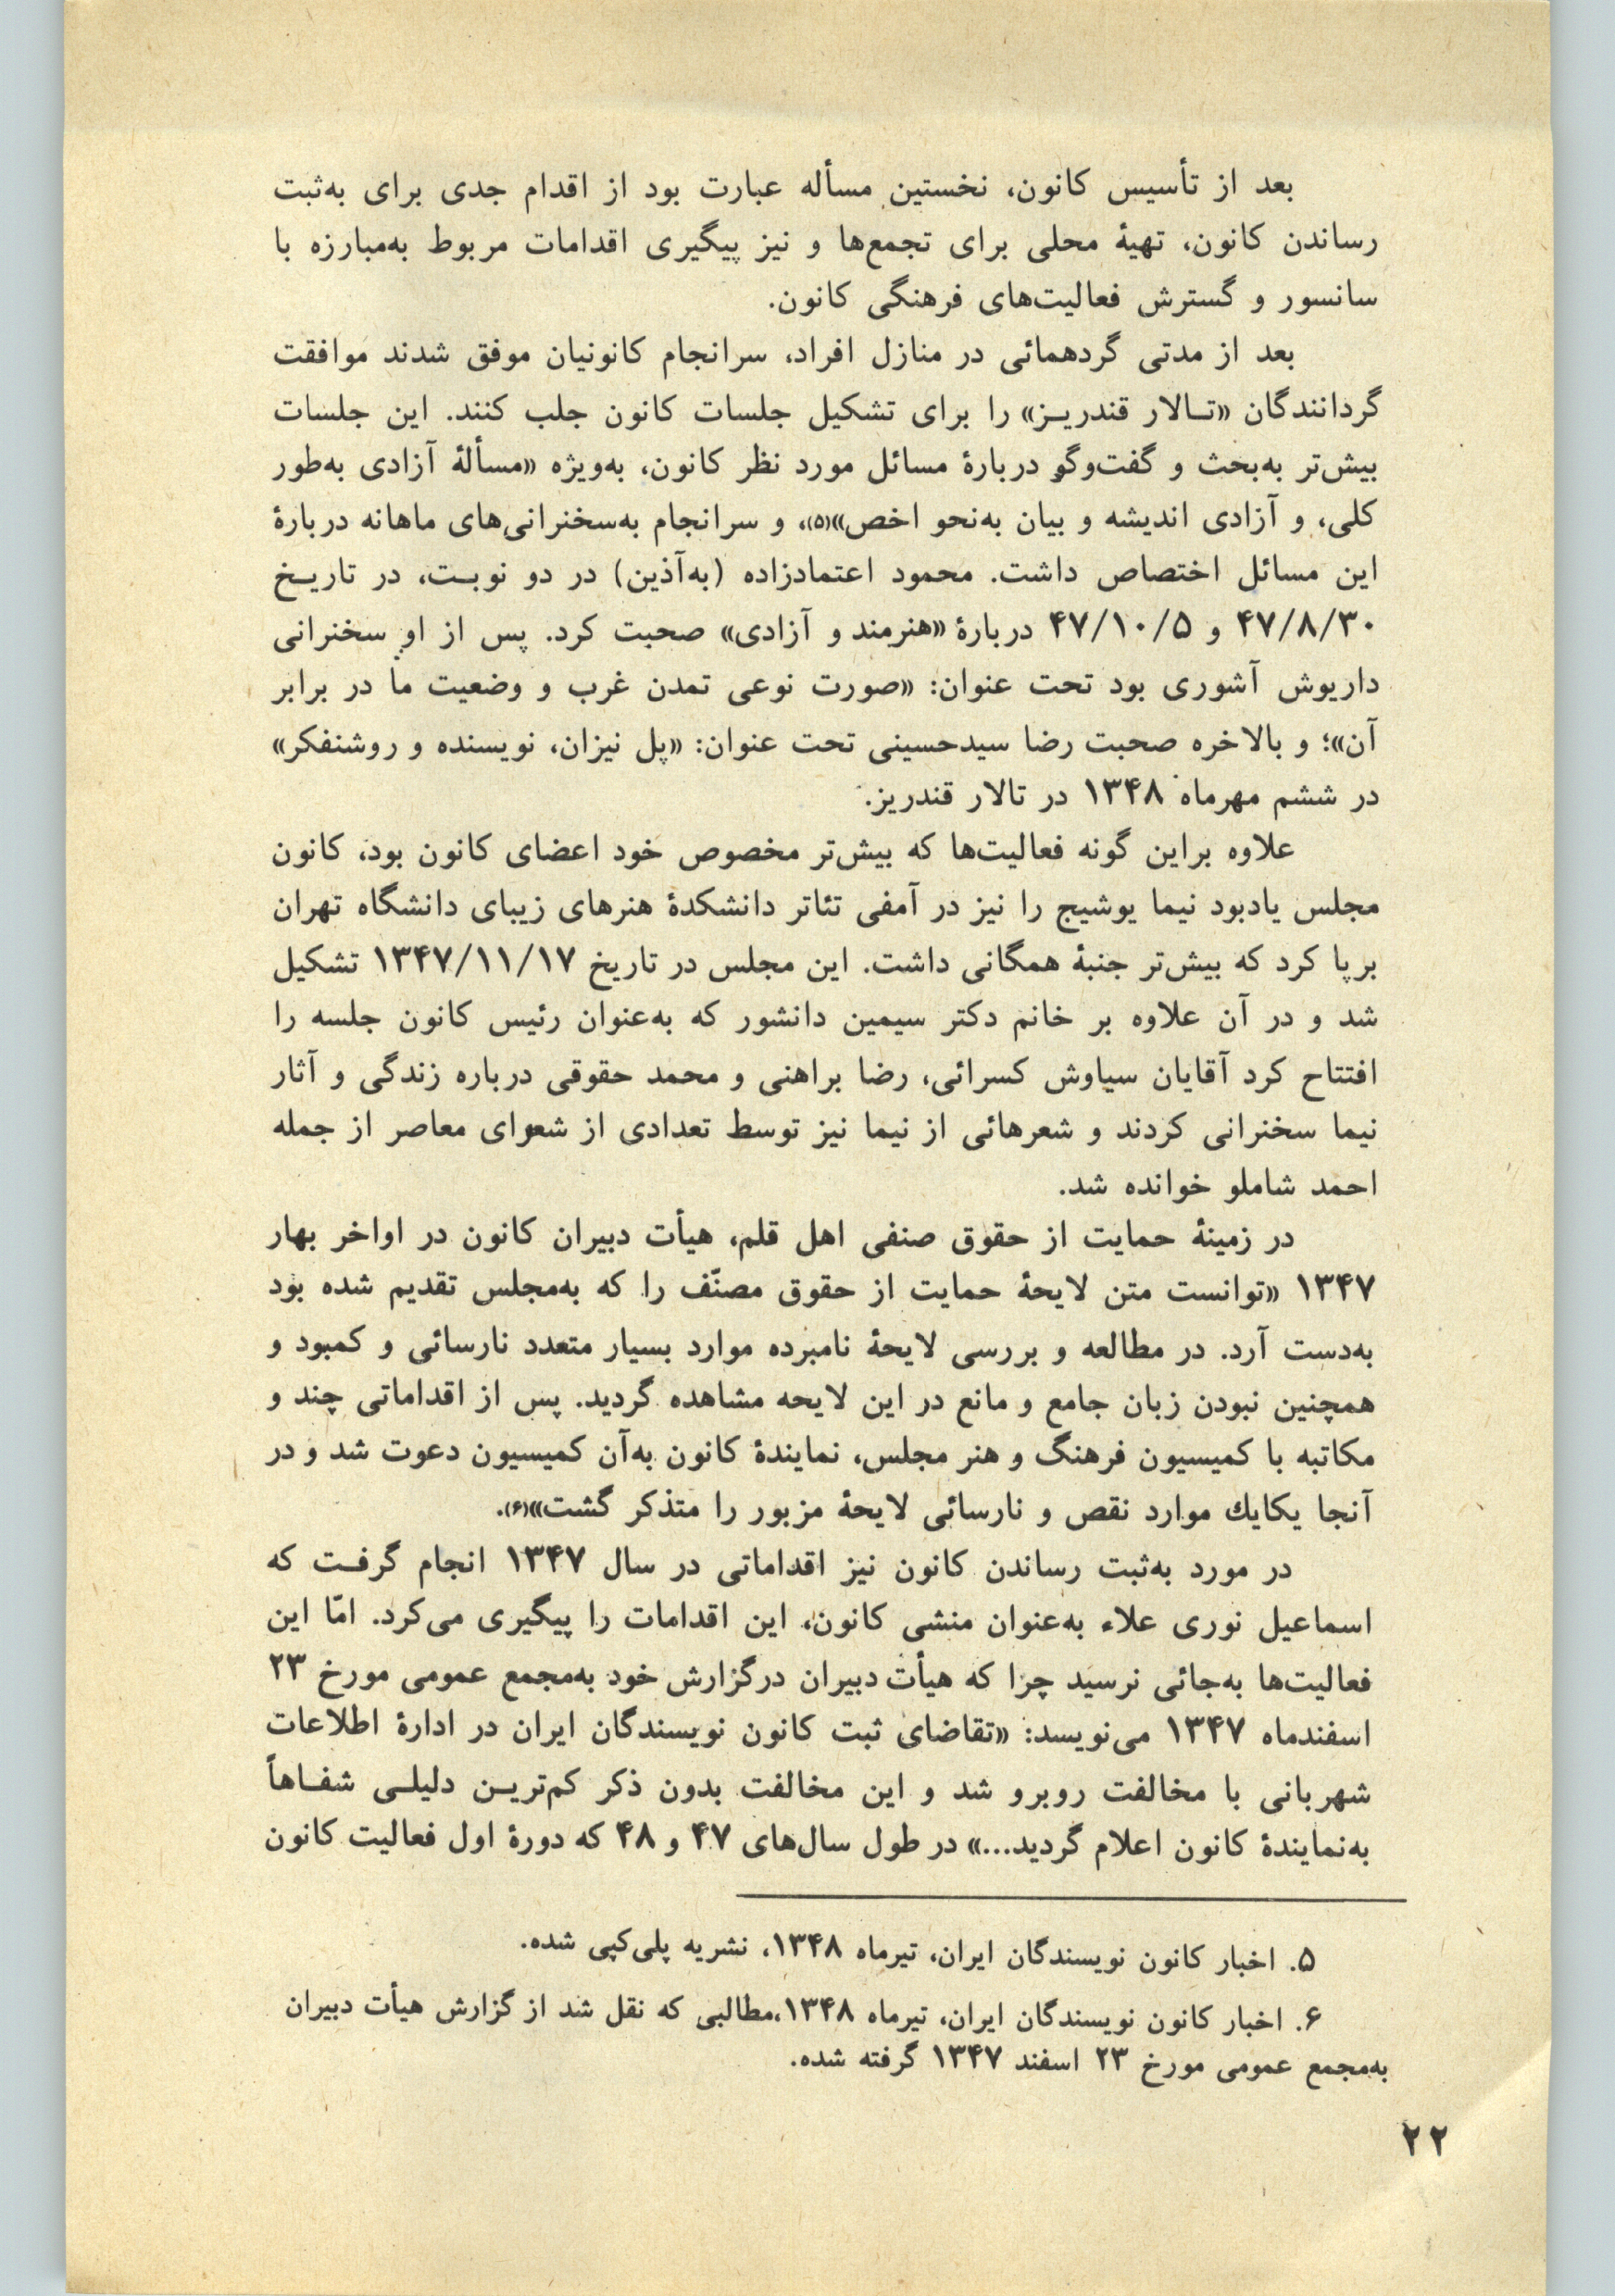 بعد از تأسیس کانون، نخستین مسأله عبارت بود از اقدام جدی برای به‌ثبت
رساندن کانون، تهیهٔ محلی برای تجمع‌ها و نیز پیگیری اقدامات مربوط به‌مبارزه با
سانسور و گسترش فعالیت‌های فرهنگی کانون.
بعد از مدتی گردهمائی در منازل افراد، سرانجام کانونیان موفق شدند موافقت
گردانندگان «تـالار قندریـز» را برای تشکیل جلسات کانون جلب کنند. این جلسات
بیش‌تر به‌بحث و گفت‌وگو دربارهٔ مسائل مورد نظر کانون، به‌ویژه «مسألهٔ آزادی به‌طور
کلی، و آزادی اندیشه و بیان به‌نحو اخص»(۵)، و سرانجام به‌سخنرانی‌های ماهانه دربارهٔ
این مسائل اختصاص داشت. محمود اعتمادزاده (به‌آذین) در دو نوبـت، در تاریـخ
۴۷/۸/۳۰ و ۴۷/۱۰/۵ دربارهٔ «هنرمند و آزادی» صحبت کرد. پس از او سخنرانی
داریوش آشوری بود تحت عنوان: «صورت نوعی تمدن غرب و وضعیت ما در برابر
آن»؛ و بالاخره صحبت رضا سیدحسینی تحت عنوان: «پل نیزان، نویسنده و روشنفکر»
در ششم مهرماه ۱۳۴۸ در تالار قندریز.
علاوه براین گونه فعالیت‌ها که بیش‌تر مخصوص خود اعضای کانون بود، کانون
مجلس یادبود نیما یوشیج را نیز در آمفی تئاتر دانشکدهٔ هنرهای زیبای دانشگاه تهران
برپا کرد که بیش‌تر جنبهٔ همگانی داشت. این مجلس در تاریخ ۱۳۴۷/۱۱/۱۷ تشکیل
شد و در آن علاوه بر خانم دکتر سیمین دانشور که به‌عنوان رئیس کانون جلسه را
افتتاح کرد آقایان سیاوش کسرائی، رضا براهنی و محمد حقوقی درباره زندگی و آثار
نیما سخنرانی کردند و شعرهائی از نیما نیز توسط تعدادی از شعرای معاصر از جمله
احمد شاملو خوانده شد.
در زمینهٔ حمایت از حقوق صنفی اهل قلم، هیأت دبیران کانون در اواخر بهار
۱۳۴۷ «توانست متن لایحهٔ حمایت از حقوق مصنّف را که به‌مجلس تقدیم شده بود
به‌دست آرد. در مطالعه و بررسی لایحهٔ نامبرده موارد بسیار متعدد نارسائی و کمبود و
همچنین نبودن زبان جامع و مانع در این لایحه مشاهده گردید. پس از اقداماتی چند و
مکاتبه با کمیسیون فرهنگ و هنر مجلس، نمایندهٔ کانون به‌آن کمیسیون دعوت شد و در
آنجا یکایك موارد نقص و نارسائی لایحهٔ مزبور را متذکر گشت»(۶).
در مورد به‌ثبت رساندن کانون نیز اقداماتی در سال ۱۳۴۷ انجام گرفـت که
اسماعیل نوری علاء به‌عنوان منشی کانون، این اقدامات را پیگیری می‌کرد. امّا این
فعالیت‌ها به‌جائی نرسید چرا که هیأت دبیران درگزارش خود به‌مجمع عمومی مورخ ۲۳
اسفندماه ۱۳۴۷ می‌نویسد: «تقاضای ثبت کانون نویسندگان ایران در ادارهٔ اطلاعات
شهربانی با مخالفت روبرو شد و این مخالفت بدون ذکر کم‌تریـن دلیلـی شفـاهاً
به‌نمایندهٔ کانون اعلام گردید...» در طول سال‌های ۴۷ و ۴۸ که دورهٔ اول فعالیت کانون
۵. اخبار کانون نویسندگان ایران، تیرماه ۱۳۴۸، نشریه پلی‌کپی شده.
۶. اخبار کانون نویسندگان ایران، تیرماه ۱۳۴۸،مطالبی که نقل شد از گزارش هیأت دبیران
به‌مجمع عمومی مورخ ۲۳ اسفند ۱۳۴۷ گرفته شده.
۲۲